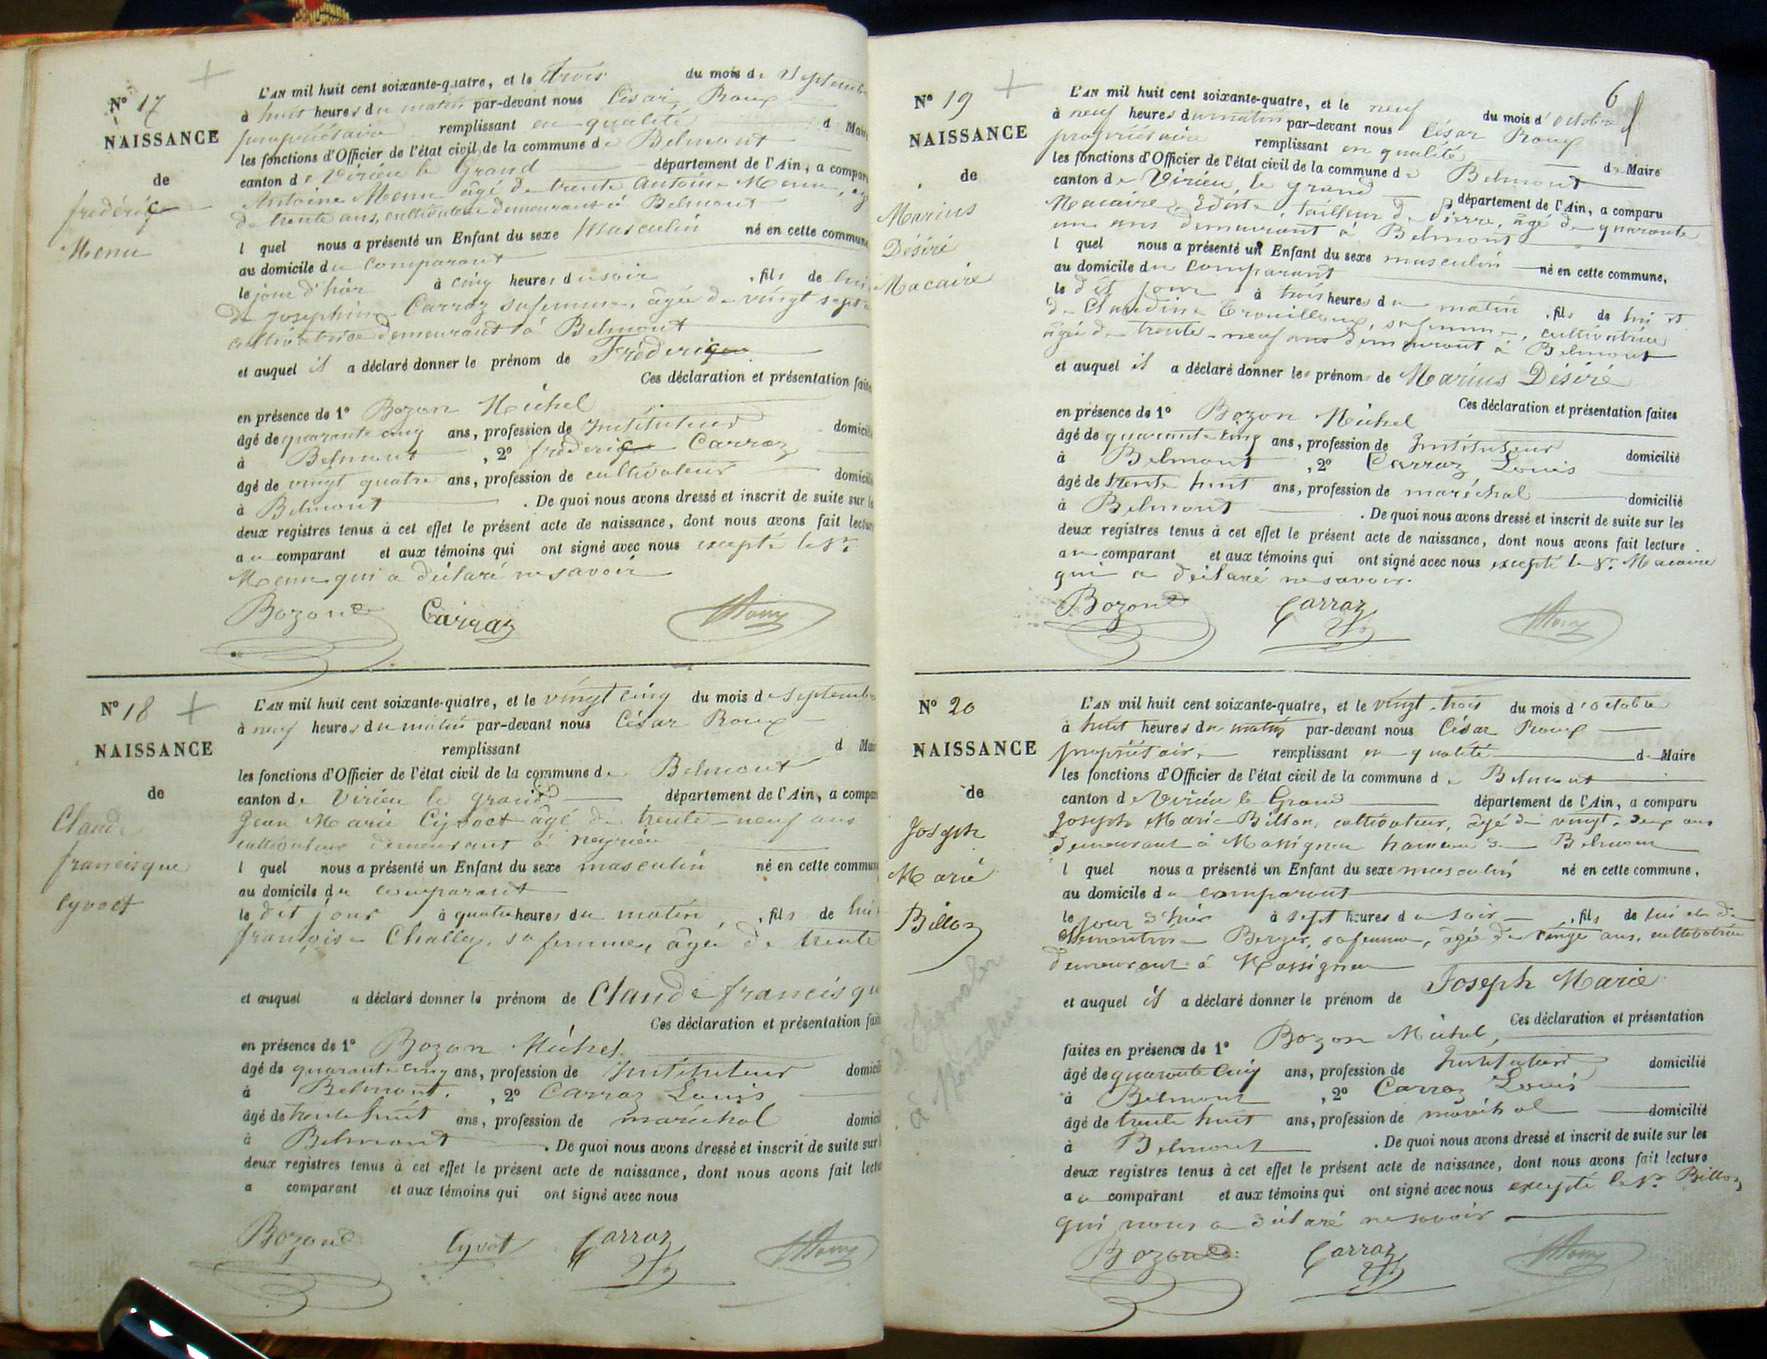 N° 17
NAISSANCE
de
frédéric
Menu
L'AN mil huit cent soixante-quatre, et le trois du mois de Septembre
à huit heures du matin par-devant nous César Roux
propriétaire remplissant en qualité d Maire
les fonctions d'Officier de l'état civil de la commune de Belmont
canton de Virieu le Grand département de l'Ain, a comparu
Antoine Menu âgé de trente Antoine Menu, âgé
de trente ans, cultivateur demeurant à Belmont
l quel nous a présenté un Enfant du sexe Masculin né en cette commune
au domicile du comparant
le jour d'hier à cinq heures du soir, fils de lui
de Josephine Carraz sa femme, âgée de vingt sept
cultivatrice demeurant à Belmont
et auquel il a déclaré donner le prénom de Fréderique
Ces déclaration et présentation faites
en présence de 1° Bozon Michel
âgé de quarante cinq ans, profession de Instituteur domicilié
à Belmont, 2° frédéric Carraz
âgé de vingt quatre ans, profession de cultivateur domicilié
à Belmont. De quoi nous avons dressé et inscrit de suite sur les
deux registres tenus à cet effet le présent acte de naissance, dont nous avons fait lecture
au comparant et aux témoins qui ont signé avec nous excepté le Sr.
Menu qui a déclaré ne savoir
Bozon Carraz Roux
N° 18
NAISSANCE
de
Claude
francisque
Cyvoct
L'AN mil huit cent soixante-quatre, et le vingt cinq du mois de Septembre
à neuf heures du matin par-devant nous César Roux
remplissant d Maire
les fonctions d'Officier de l'état civil de la commune de Belmont
canton de Virieu le grand département de l'Ain, a comparu
Jean Marie Cyvoct âgé de trente-neuf ans
cultivateur demeurant à
l quel nous a présenté un Enfant du sexe masculin né en cette commune
au domicile du comparant
le dit jour à quatre heures du matin, fils de lui
françoise Challey, sa femme, âgée de trente
et auquel a déclaré donner le prénom de Claude francisque
Ces déclaration et présentation faites
en présence de 1° Bozon Michel
âgé de quarante cinq ans, profession de Instituteur domicilié
à Belmont, 2° Carraz Louis
âgé de trente huit ans, profession de maréchal domicilié
à Belmont. De quoi nous avons dressé et inscrit de suite sur
deux registres tenus à cet effet le présent acte de naissance, dont nous avons fait lecture
a comparant et aux témoins qui ont signé avec nous
Bozon Cyvoct Carraz Roux
6
N° 19
NAISSANCE
de
Marius
Désiré
Macaire
L'AN mil huit cent soixante-quatre, et le neuf du mois d'octobre
à neuf heures du matin par-devant nous César Roux
propriétaire remplissant en qualité de Maire
les fonctions d'Officier de l'état civil de la commune de Belmont
canton de Virieu le grand département de l'Ain, a comparu
Macaire tailleur de pierre, âgé de quarante
un ans demeurant à Belmont
l quel nous a présenté un Enfant du sexe masculin né en cette commune,
au domicile du comparant
le dit jour à trois heures du matin, fils de lui et
de Claudine Trouilloux, sa femme, cultivatrice
âgée de trente-neuf ans demeurant à Belmont
et auquel il a déclaré donner les prénoms de Marius Désiré
Ces déclaration et présentation faites
en présence de 1° Bozon Michel
âgé de quarante cinq ans, profession de Instituteur domicilié
à Belmont, 2° Carraz Louis
âgé de trente huit ans, profession de maréchal domicilié
à Belmont. De quoi nous avons dressé et inscrit de suite sur les
deux registres tenus à cet effet le présent acte de naissance, dont nous avons fait lecture
au comparant et aux témoins qui ont signé avec nous excepté le Sr. Macaire
qui a déclaré ne savoir.
Bozon Carraz Roux
N° 20
NAISSANCE
de
Joseph
Marie
Billon
L'AN mil huit cent soixante-quatre, et le vingt-trois du mois d'octobre
à huit heures du matin par-devant nous César Roux
propriétaire remplissant en qualité de Maire
les fonctions d'Officier de l'état civil de la commune de Belmont
canton de Virieu le Grand département de l'Ain, a comparu
Joseph Marie Billon, cultivateur, âgé de vingt-deux ans
demeurant à Massignieu hameau de Belmont
l quel nous a présenté un Enfant du sexe masculin né en cette commune,
au domicile du comparant
le jour d'hier à sept heures du soir, fils de lui et de
Berger, sa femme, âgée de vingt ans, cultivatrice
demeurant à Massignieu
et auquel il a déclaré donner le prénom de Joseph Marie
Ces déclaration et présentation
faites en présence de 1° Bozon Michel,
âgé de quarante cinq ans, profession de Instituteur domicilié
à Belmont, 2° Carraz Louis
âgé de trente huit ans, profession de maréchal domicilié
à Belmont. De quoi nous avons dressé et inscrit de suite sur les
deux registres tenus à cet effet le présent acte de naissance, dont nous avons fait lecture
au comparant et aux témoins qui ont signé avec nous excepté le Sr. Billon
qui nous a déclaré ne savoir
Bozon Carraz Roux